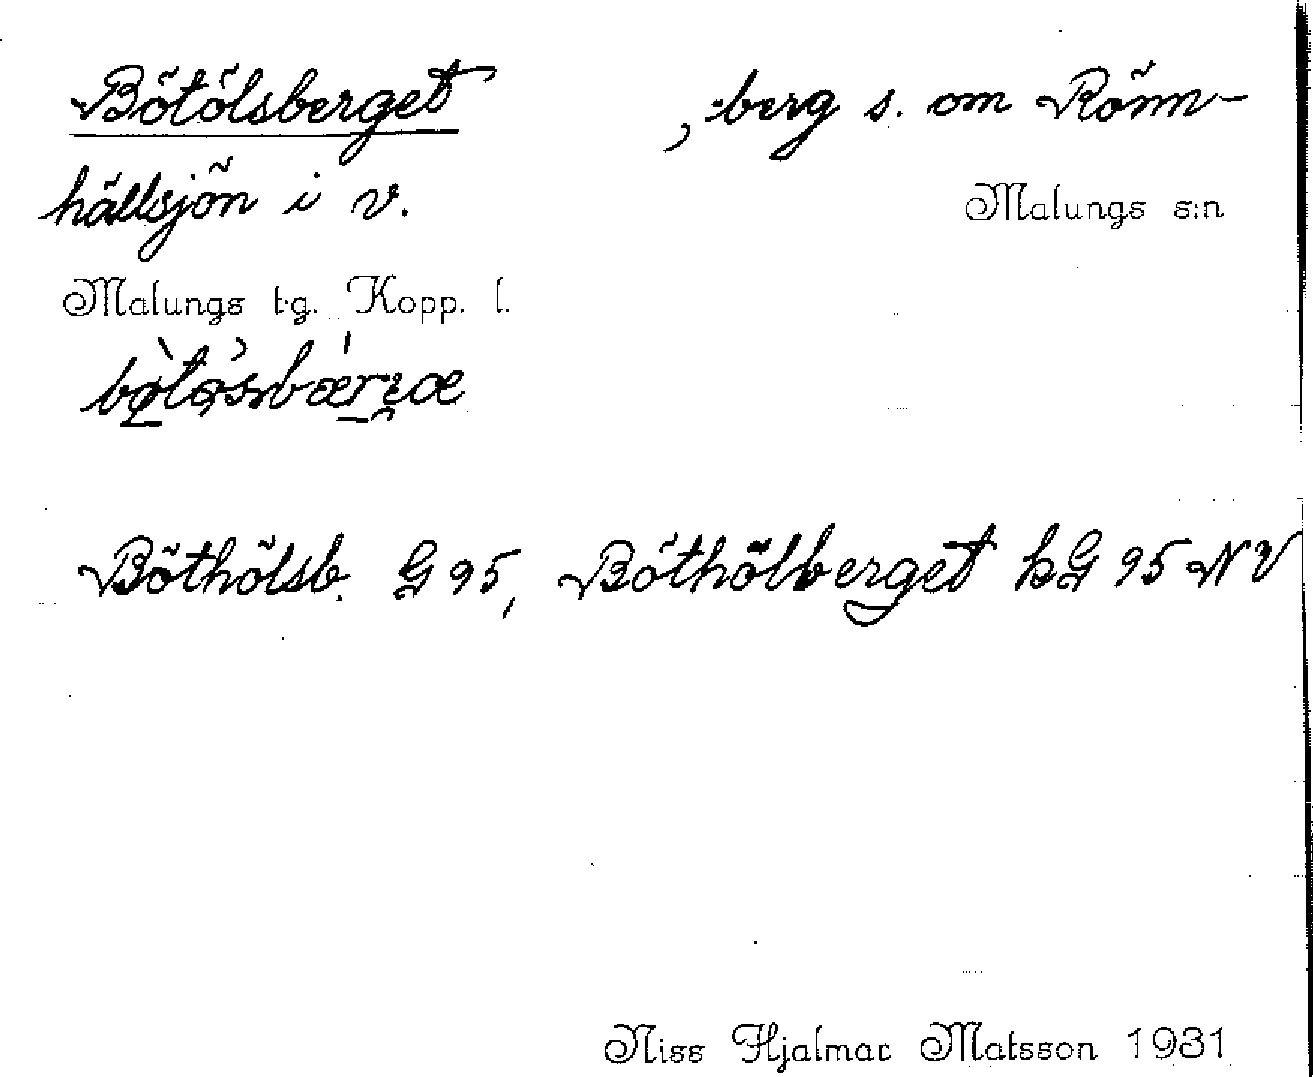 Bötölsberget , berg s. om Rönn-
hällsjön i v. Malungs s:n
Malungs tg. Kopp. l.
Böthölsb. G 95, Böthölberget hG 95 NV
Niss Hjalmar Matsson 1931